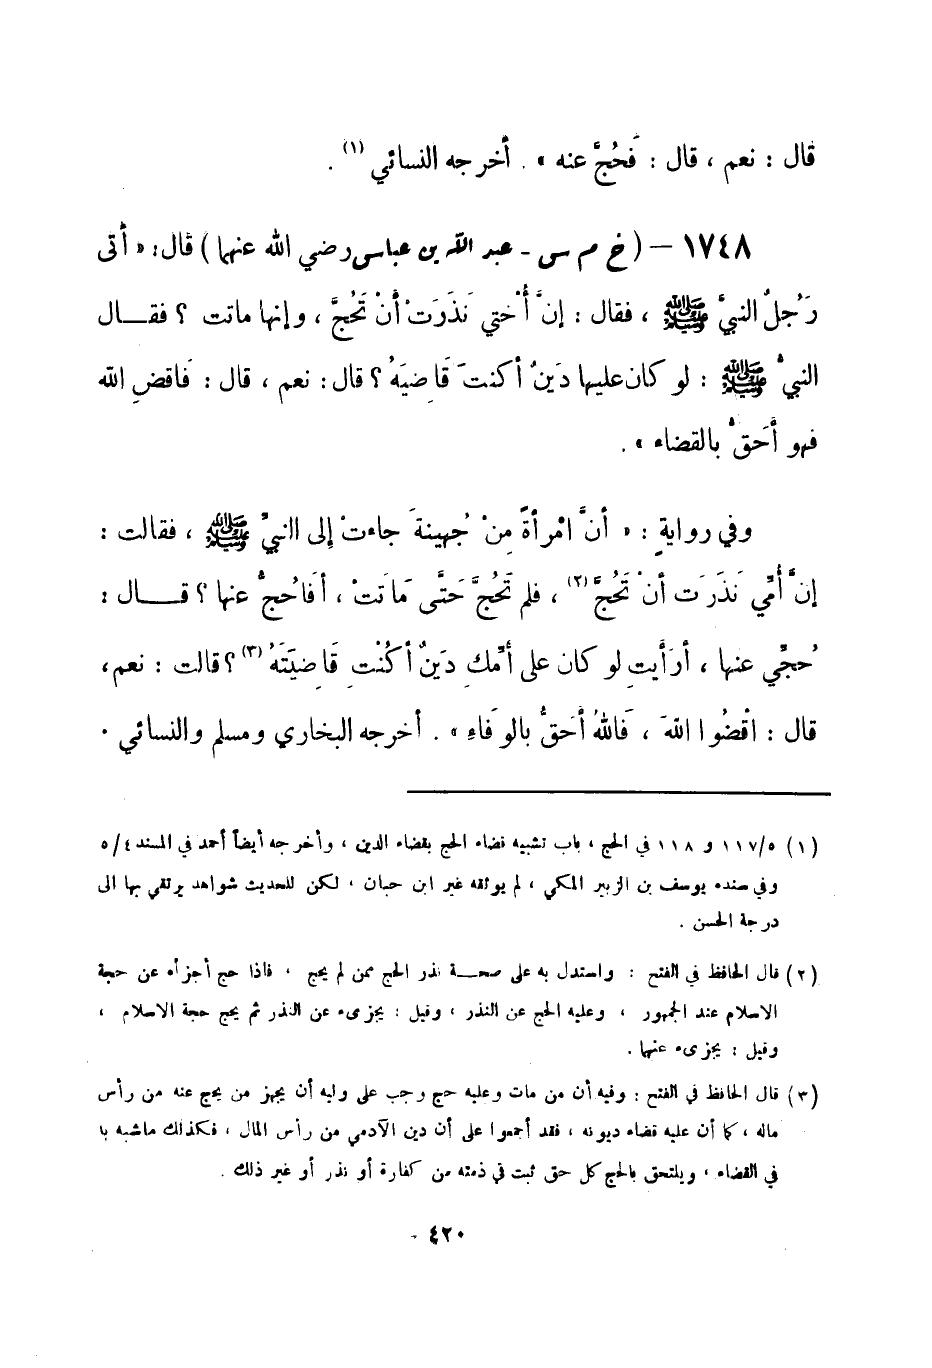 قال : نعم ، قال : فَحُجَّ عنه » . أخرجه النسائي (١) .
١٧٤٨ – ( خ م س - عبد اللّه بن عباس رضي الله عنهما ) قال : « أتى
رَجُلٌ النبيَّ ﷺ ، فقال : إنَّ أُختي نَذَرَتْ أنْ تَحُجَّ ، وإنها ماتت ؟ فقـــال
النبيُّ ﷺ : لو كان عليها دَينٌ أكنتَ قَاضِيَهُ ؟ قال : نعم ، قال : فَاقضِ الله
فهو أَحَقُّ بالقضاء » .
وفي روايةٍ : « أنَّ امْرأةً مِنْ جُهينةَ جاءتْ إلى النبيِّ ﷺ ، فقالت :
إنَّ أُمِّي نَذَرَت أنْ تَحُجَّ (٢) ، فلم تَحُجَّ حَتَّى مَاتتْ ، أفَأحُجُّ عنها ؟ قــــال :
حُجِّي عنها ، أرَأَيتِ لو كان على أُمِّكِ دَينٌ أكُنْتِ قَاضِيَتَهُ (٣) ؟ قالت : نعم ،
قال : اقْضُوا اللهَ ، فَاللهُ أَحَقُّ بالوفَاءِ » . أخرجه البخاري ومسلم والنسائي .
(١) ١١٧/٥ و ١١٨ في الحج ، باب تشبيه قضاء الحج بقضاء الدين ، وأخرجه أيضاً أحمد في المسند ٥/٤
وفي سنده يوسف بن الزبير المكي ، لم يوثقه غير ابن حبان ، لكن للحديث شواهد يرتقي بها الى
درجة الحسن .
(٢) قال الحافظ في الفتح : واستدل به على صحـــة نذر الحج ممن لم يحج ، فاذا حج أجزأه عن حجة
الاسلام عند الجمهور ، وعليه الحج عن النذر ، وقيل : يجزىء عن النذر ثم يحج حجة الاسلام ،
وقيل : يجزىء عنهما .
(٣) قال الحافظ في الفتح : وفيه أن من مات وعليه حج وجب على وليه أن يجهز من يحج عنه من رأس
ماله ، كما أن عليه قضاء ديونه ، فقد أجمعوا على أن دين الآدمي من رأس المال ، فكذلك ماشبه با
في القضاء ، ويلتحق بالحج كل حق ثبت في ذمته من كفارة أو نذر أو غير ذلك .
٤٢٠ -